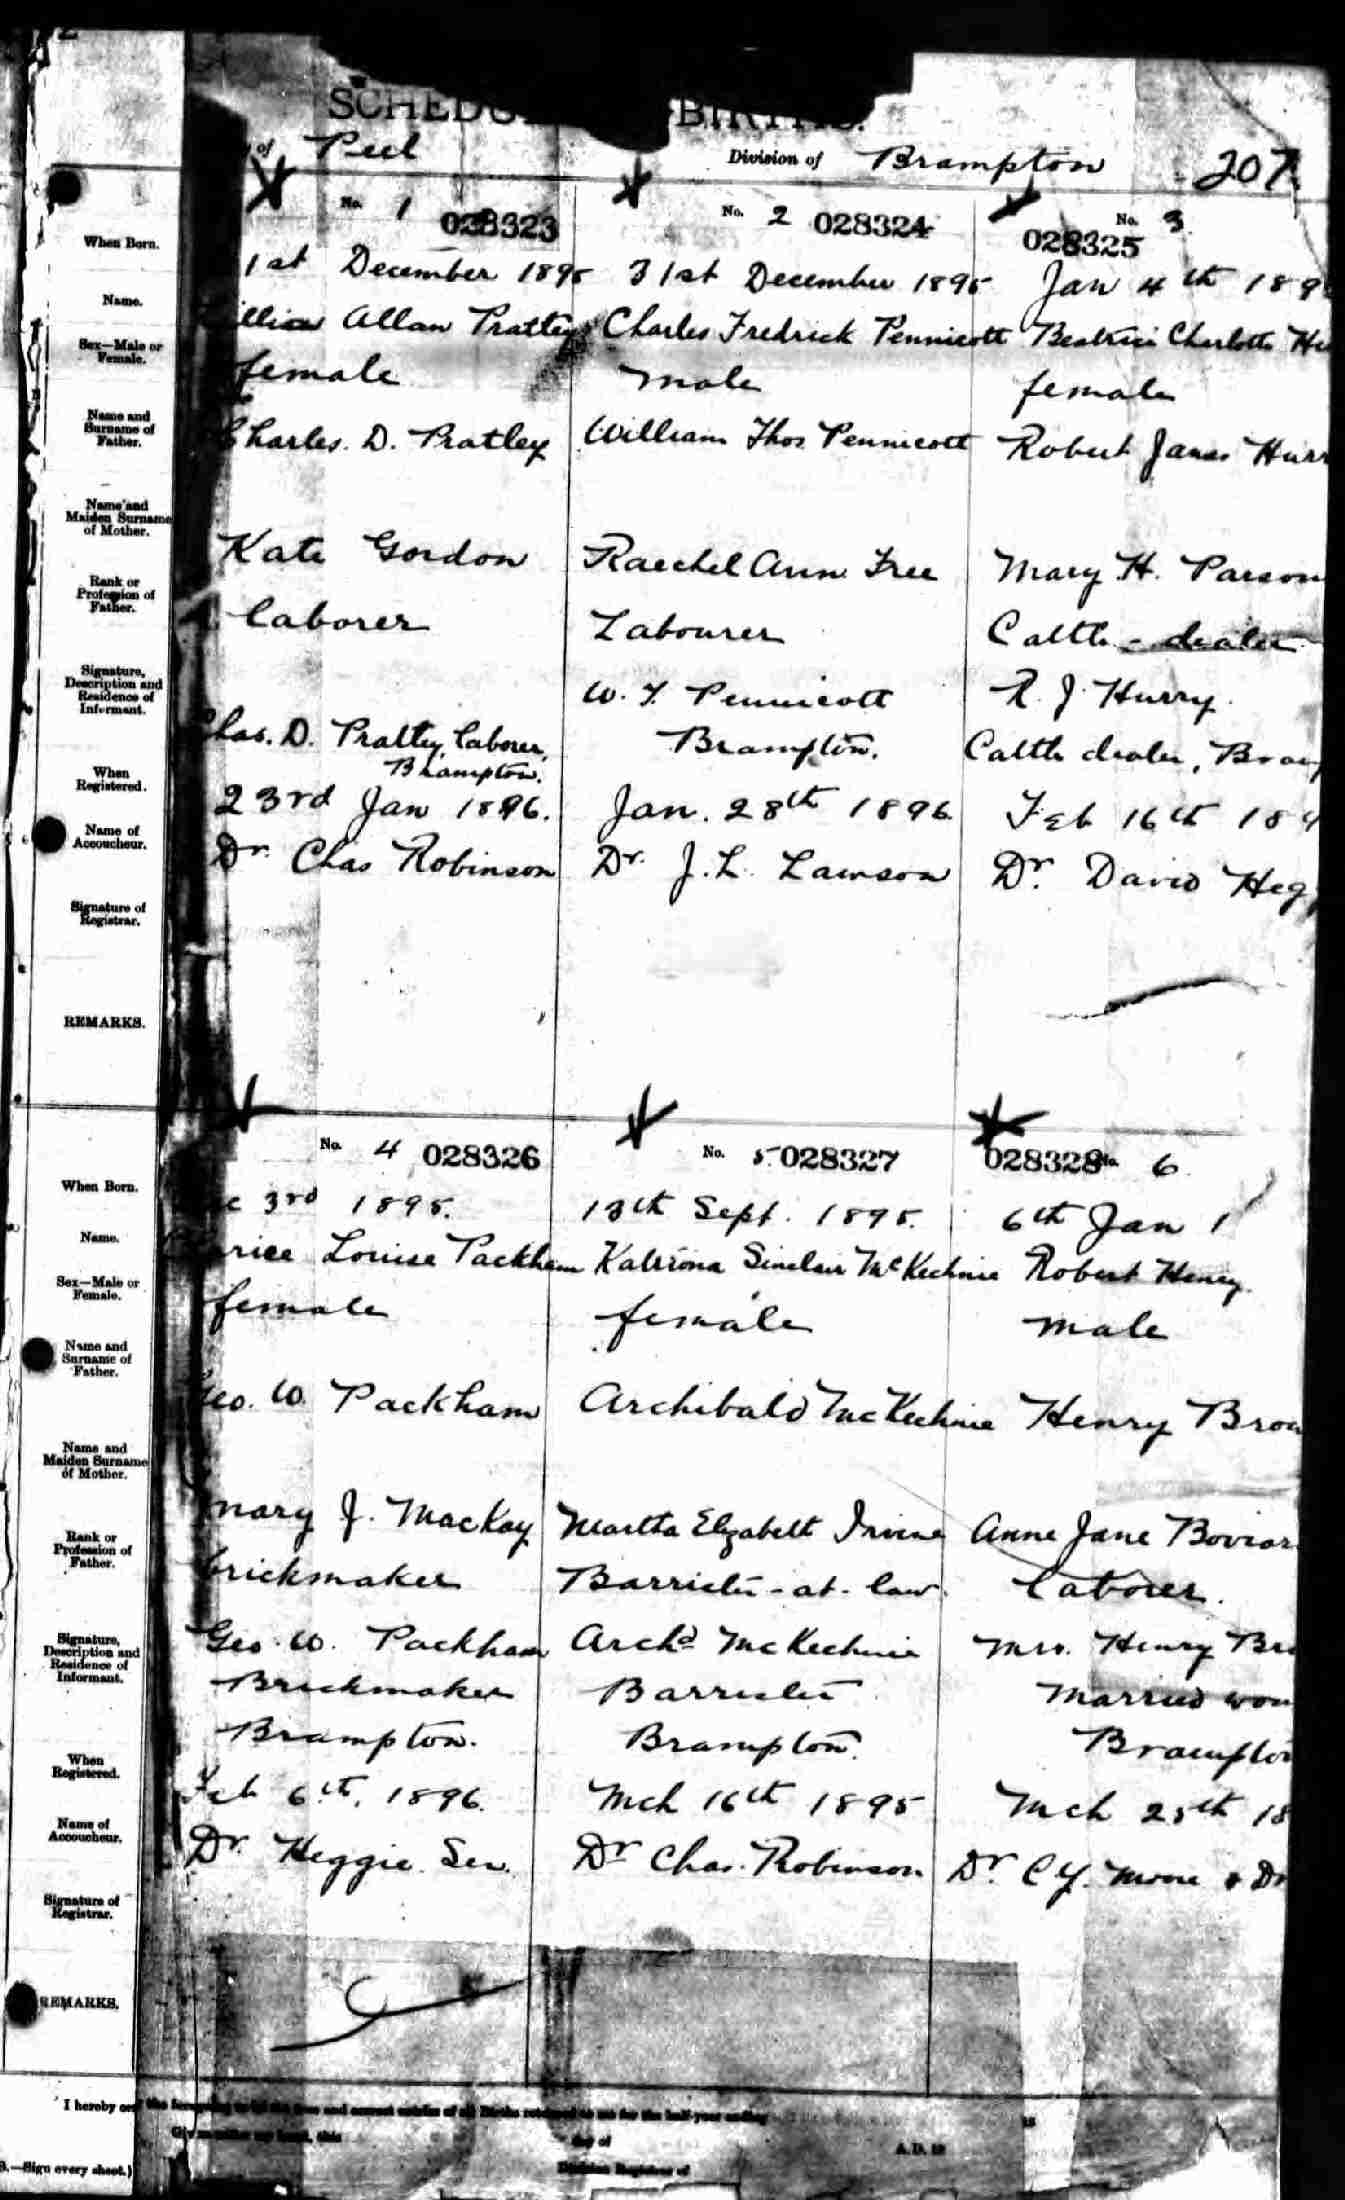 SCHEDU BIRTHS.
of Peel Division of Brampton 207
No. 1 028323 No. 2 028324 No. 3 028325
When Born. 1st December 1895 31st December 1895 Jan 4th 189
Name. Allan Pratley Charles Fredrick Pennicott Beatrice Charlotte Hu
Sex—Male or Female. female male female
Name and Surname of Father. Charles. D. Pratley William Thos Pennicott Robert James Hurr
Name and Maiden Surname of Mother. Kate Gordon Raechel Ann Free Mary H. Parson
Rank or Profession of Father. laborer Labourer Cattle-dealer
Signature, Description and Residence of Informant. Chas. D. Pratley, laborer, Brampton. W. T. Pennicott Brampton. R. J. Hurry. Cattle dealer, Bram
When Registered. 23rd Jan 1896. Jan. 28th 1896. Feb 16th 189
Name of Accoucheur. Dr. Chas Robinson Dr. J. L. Lawson Dr. David Hegg
Signature of Registrar.
REMARKS.
No. 4 028326 No. 5 028327 028328 No. 6
When Born. 3rd 1895. 13th Sept. 1895. 6th Jan 1
Name. Louise Packham Katrona Sinclair McKechnie Robert Henry.
Sex—Male or Female. female female male
Name and Surname of Father. Geo. W Packham Archibald McKechnie Henry Brow
Name and Maiden Surname of Mother. Mary J. MacKay Martha Elizabeth Irvine Anne Jane Boviar
Rank or Profession of Father. brickmaker Barrister-at-law. laborer.
Signature, Description and Residence of Informant. Geo. W. Packham Archd McKechnie Mrs. Henry Bro
Brickmaker Barrister Married wom
Brampton. Brampton. Brampton
When Registered. Feb 6th, 1896. Mch 16th 1895 Mch 25th 18
Name of Accoucheur. Dr. Heggie Sen. Dr Chas. Robinson Dr. C.Y. Moore & Dr
Signature of Registrar.
REMARKS.
I hereby the foregoing and correct entries of all Births returned to me for the half-year ending
Given under my hand, this day of A.D. 18
Division Registrar of
—Sign every sheet.)